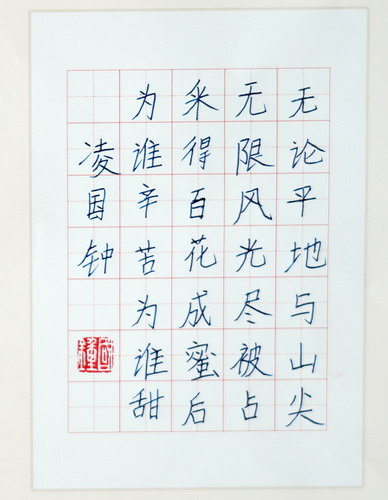 无论平地与山尖
无限风光尽被占
采得百花成蜜后
为谁辛苦为谁甜
凌国钟